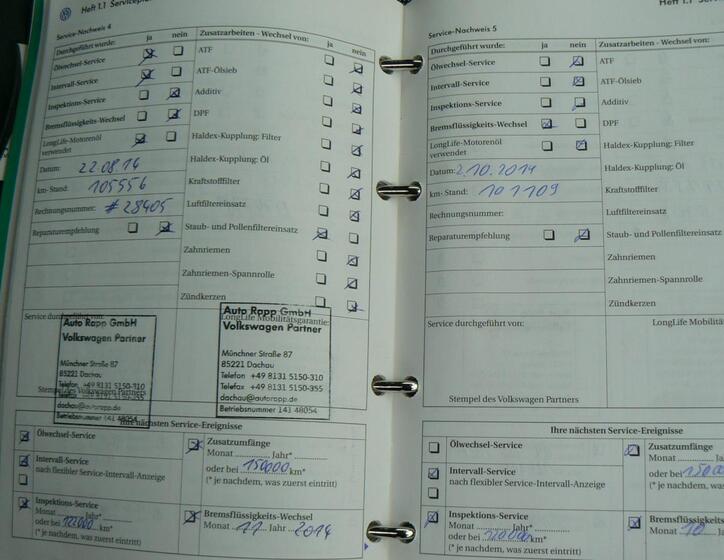 Heft 1.1 Serviceplan
Service-Nachweis 4
Durchgeführt wurde: ja nein
Ölwechsel-Service
Intervall-Service
Inspektions-Service
Bremsflüssigkeits-Wechsel
LongLife-Motorenöl
verwendet
Datum: 22.08.14
km-Stand: 105556
Rechnungsnummer: #28405
Reparaturempfehlung
Zusatzarbeiten - Wechsel von: ja nein
ATF
ATF-Ölsieb
Additiv
DPF
Haldex-Kupplung: Filter
Haldex-Kupplung: Öl
Kraftstofffilter
Luftfiltereinsatz
Staub- und Pollenfiltereinsatz
Zahnriemen
Zahnriemen-Spannrolle
Zündkerzen
Service durchgeführt von:
Auto Rapp GmbH
Volkswagen Partner
Münchner Straße 87
85221 Dachau
Telefon +49 8131 5150-310
Telefax +49 8131 5150-355
dachau@autorapp.de
Betriebsnummer 141 48054
Stempel des Volkswagen Partners
LongLife Mobilitätsgarantie:
Auto Rapp GmbH
Volkswagen Partner
Münchner Straße 87
85221 Dachau
Telefon +49 8131 5150-310
Telefax +49 8131 5150-355
dachau@autorapp.de
Betriebsnummer 141 48054
Ihre nächsten Service-Ereignisse
Ölwechsel-Service
Intervall-Service
nach flexibler Service-Intervall-Anzeige
Inspektions-Service
Monat Jahr*
oder bei km*
(* je nachdem, was zuerst eintritt)
Zusatzumfänge
Monat Jahr*
oder bei 150000 km*
(* je nachdem, was zuerst eintritt)
Bremsflüssigkeits-Wechsel
Monat 11 2014
Heft 1.1
Service-Nachweis 5
Durchgeführt wurde: ja nein
Ölwechsel-Service
Intervall-Service
Inspektions-Service
Bremsflüssigkeits-Wechsel
LongLife-Motorenöl
verwendet
Datum: 2.10.2014
km-Stand:
Rechnungsnummer:
Reparaturempfehlung
Zusatzarbeiten - Wechsel von:
ATF
ATF-Ölsieb
Additiv
DPF
Haldex-Kupplung: Filter
Haldex-Kupplung: Öl
Kraftstofffilter
Luftfiltereinsatz
Staub- und Pollenfiltereinsatz
Zahnriemen
Zahnriemen-Spannrolle
Zündkerzen
Service durchgeführt von:
Stempel des Volkswagen Partners
LongLife
Ihre nächsten Service-Ereignisse
Ölwechsel-Service
Intervall-Service
nach flexibler Service-Intervall-Anzeige
Inspektions-Service
Monat Jahr*
oder bei km*
(* je nachdem, was zuerst eintritt)
Zusatzumfänge
Monat
oder bei
(* je nachdem, was
Bremsflüssigkeits
Monat 10